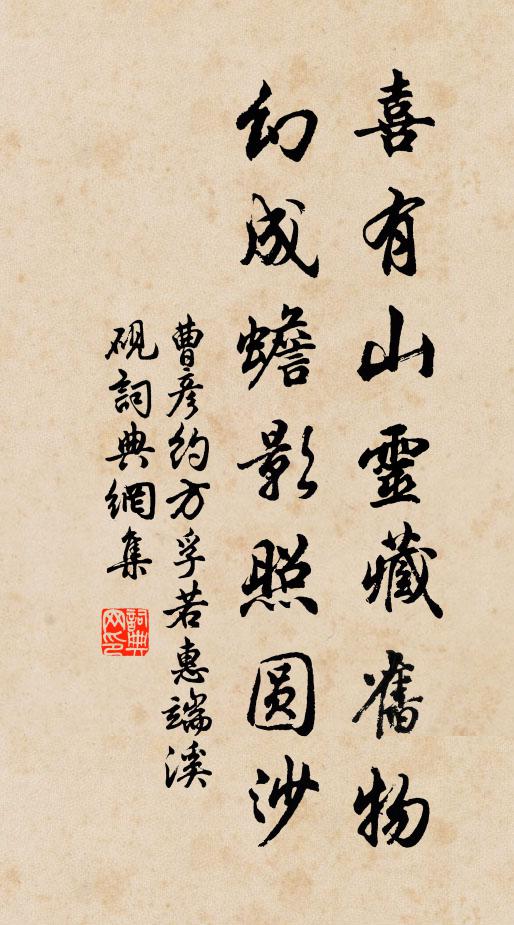 喜有山靈藏舊物
幻成蟾影照圆沙
曹彦約方孚若惠端溪
硯詞典網集
詞典
网印